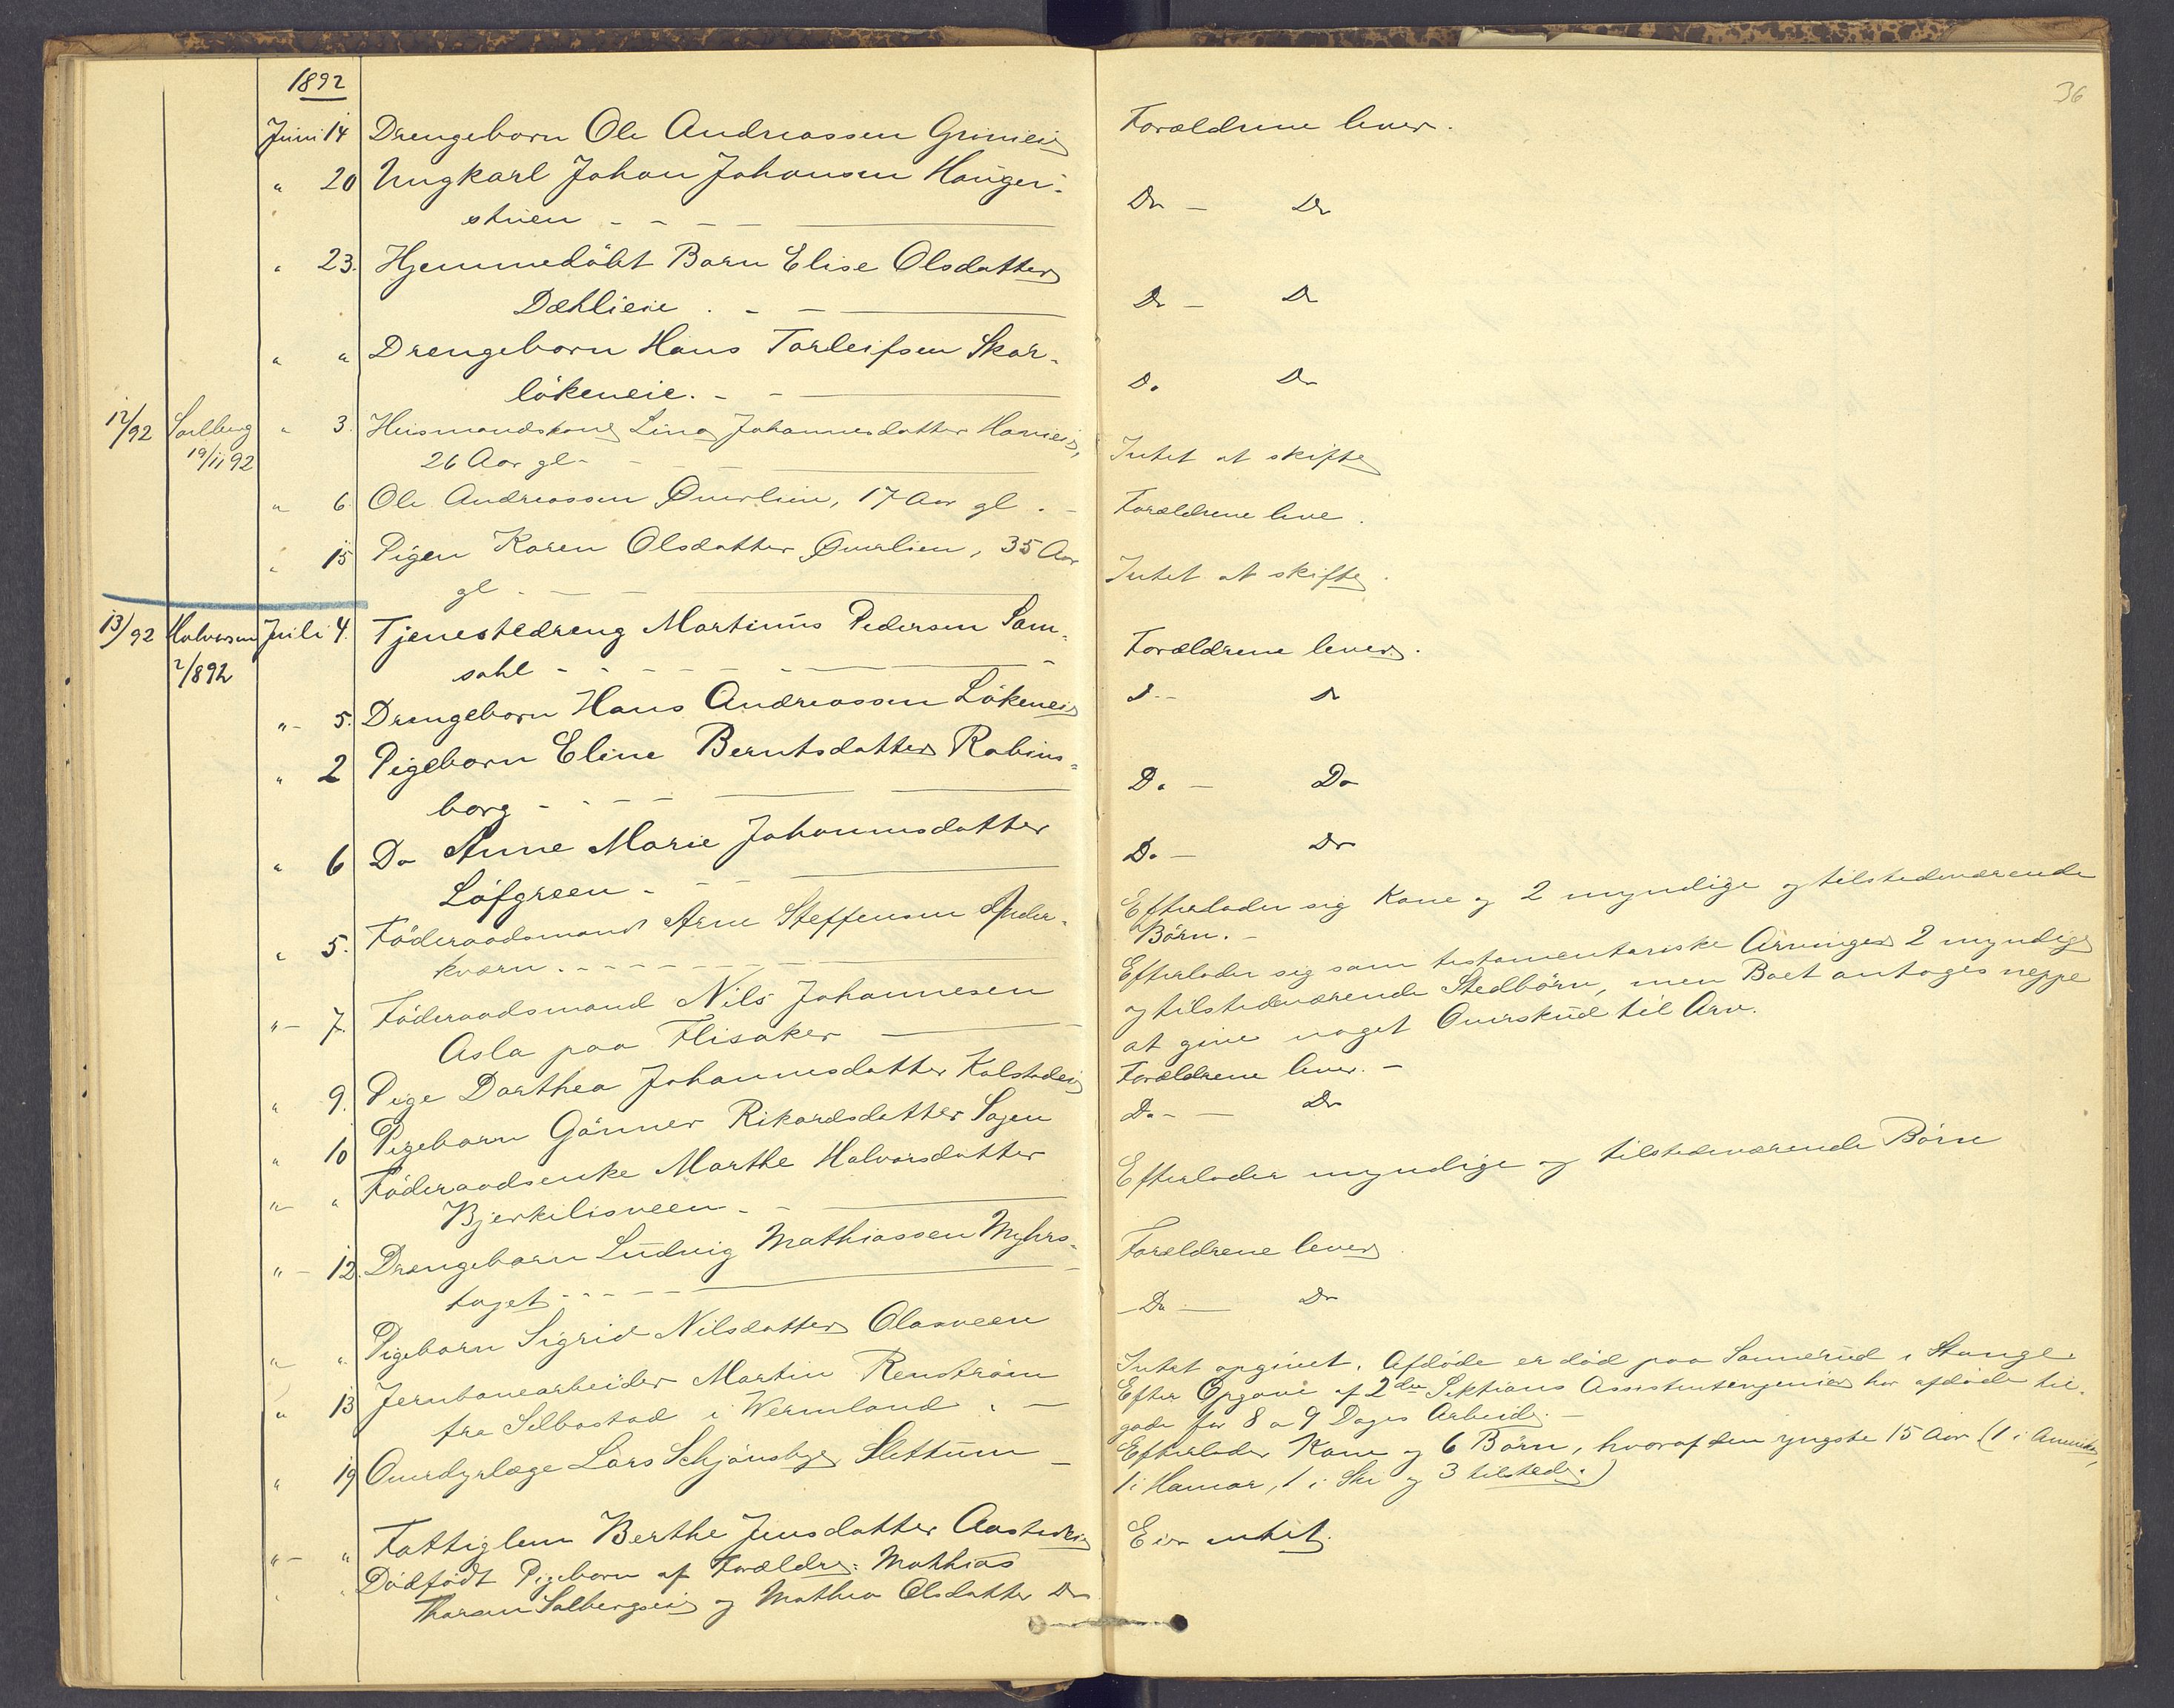 1892
36
Juni 14 Drengebarn Ole Andreassen Grimeie
Forældrene lever.
" 20 Ungkarl Johan Johansen Hauger-
stuen - - - -
Do - Do
" 23. Hjemmedöbt Barn Elise Olsdatter
Dæhlieie . - -
Do - Do
" " Drengebarn Hans Torleifsen Skar-
lökeneie. - -
Do Do
12/92 Solberg 19/11 92 " 3. Husmandskone Lina Johannesdatter
26 Aar gl - - - -
Intet at skifte
" 6 Ole Andreassen Øverlien, 17 Aar gl. -
Forældrene leve.
" 15 Pigen Karen Olsdatter Øverlien, 35 Aar
gl - - -
Intet at skifte.
13/92 Halvorsen 2/8 92 Juli 4. Tjenestedreng Martinus Pedersen Sam-
sahl - - - - - -
Forældrene lever.
"- 5. Drengebarn Hans Andreassen Lökeneie
D-- Do
" 2 Pigebarn Eline Berntsdatter Robins-
borg - - - -
Do - Do
" 6 Do Anne Marie Johannesdatter
Löfgreen - - -
Do - Do
" 5. Föderaadsmand Arne Steffensen
kværn. - - - - - -
Efterlader sig Kone og 2 myndige og tilstedeværende
Börn. -
"- 7. Föderaadsmand Nils Johannesen
Asla paa Flisaker
Efterlader sig som testamentariske Arvinger 2 myndige
og tilstedeværende Stedbörn, men Boet antages neppe
at give noget Overskud til Arv.
" 9. Pige Dorthea Johannesdatter Kolstadeie
Forældrene lever. -
" 10 Pigebarn Gönner Rikardsdatter Sagen
Do - - Do
"- " Föderaadsenke Marthe Halvorsdatter
Bjerkilisveen - -
Efterlader myndige og tilstedeværende Börn
"- 12. Drengebarn Ludvig Mathiassen Myhrs-
taget - - - - -
Forældrene lever.
"- ". Pigebarn Sigrid Nilsdatter Olasveen
- Do - Do
" 13 Jernbanearbeider Martin Renström
fra Silbostad i Wermland. -
Intet opgivet. Afdöde er död paa Sannerud i Stange.
Efter Opgave af 2den Sektions Assistentingeniør har afdöde til-
gode for 8 a 9 Dages Arbeide. -
" 19 Overdyrlæge Lars Schjönsby Slettum -
Efterlader Kone og 6 Börn, hvoraf den yngste 15 Aar (1 i Amerika,
1 i Hamar, 1 i Ski og 3 tilstede.)
"- " Fattiglem Berthe Jensdatter Aastadeie
Eier intet.
" " Dödfödt Pigebarn af Forældre: Mathias
Thoresen Solbergseie og Mathea Olsdatter Do